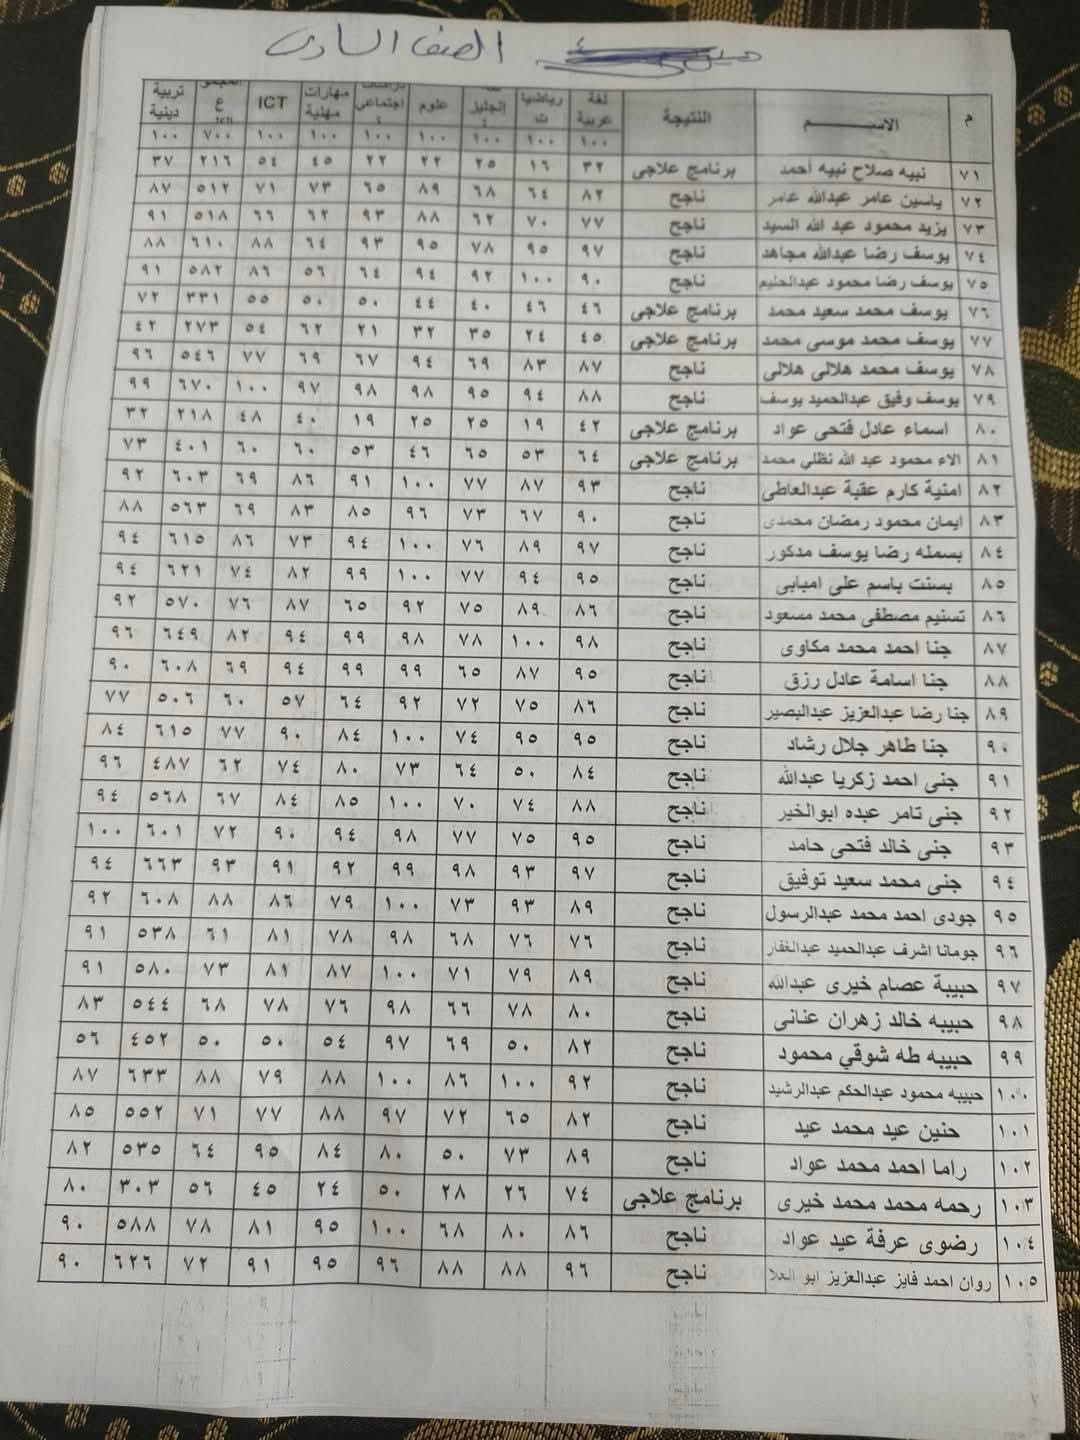 الصف السادس
م الاســـــم النتيجة لغة عربية رياضيات إنجليزي علوم اجتماعى مهارات مهنية ICT ع تربية دينية
١٠٠ ١٠٠ ١٠٠ ١٠٠ ١٠٠ ١٠٠ ١٠٠ ٧٠٠ ١٠٠
٧١ نبيه صلاح نبيه احمد برنامج علاجى ٣٢ ١٦ ٢٥ ٢٢ ٢٢ ٤٥ ٥٤ ٢١٦ ٣٧
٧٢ ياسين عامر عبدالله عامر ناجح ٨٢ ٦٤ ٦٨ ٨٩ ٦٥ ٧٣ ٧١ ٥١٢ ٨٧
٧٣ يزيد محمود عبد الله السيد ناجح ٧٧ ٧٠ ٦٢ ٨٨ ٩٣ ٦٢ ٦٦ ٥١٨ ٩١
٧٤ يوسف رضا عبدالله مجاهد ناجح ٩٧ ٩٥ ٧٨ ٩٥ ٩٣ ٦٤ ٨٨ ٦١٠ ٨٨
٧٥ يوسف رضا محمود عبدالحليم ناجح ٩٠ ١٠٠ ٩٢ ٩٤ ٦٤ ٥٦ ٨٦ ٥٨٢ ٩١
٧٦ يوسف محمد سعيد محمد برنامج علاجى ٤٦ ٤٦ ٤٠ ٤٤ ٥٠ ٥٠ ٥٥ ٣٣١ ٧٢
٧٧ يوسف محمد موسى محمد برنامج علاجى ٤٥ ٢٤ ٣٥ ٣٢ ٢١ ٦٢ ٥٤ ٢٧٣ ٤٢
٧٨ يوسف محمد هلالى هلالى ناجح ٨٧ ٨٣ ٦٩ ٩٤ ٦٧ ٦٩ ٧٧ ٥٤٦ ٩٦
٧٩ يوسف وفيق عبدالحميد يوسف ناجح ٨٨ ٩٤ ٩٥ ٩٨ ٩٨ ٩٧ ١٠٠ ٦٧٠ ٩٩
٨٠ اسماء عادل فتحى عواد برنامج علاجى ٤٢ ١٩ ٢٥ ٢٥ ١٩ ٤٠ ٤٨ ٢١٨ ٣٢
٨١ الاء محمود عبد الله نظلي محمد برنامج علاجى ٦٤ ٥٣ ٦٥ ٤٦ ٥٣ ٦٠ ٦٠ ٤٠١ ٧٣
٨٢ امنية كارم عقبة عبدالعاطى ناجح ٩٣ ٨٧ ٧٧ ١٠٠ ٩١ ٨٦ ٦٩ ٦٠٣ ٩٢
٨٣ ايمان محمود رمضان محمدى ناجح ٩٠ ٦٧ ٧٣ ٩٦ ٨٥ ٨٣ ٦٩ ٥٦٣ ٨٨
٨٤ بسمله رضا يوسف مدكور ناجح ٩٧ ٨٩ ٧٦ ١٠٠ ٩٤ ٧٣ ٨٦ ٦١٥ ٩٤
٨٥ بسنت باسم على امبابى ناجح ٩٥ ٩٤ ٧٧ ١٠٠ ٩٩ ٨٢ ٧٤ ٦٢١ ٩٤
٨٦ تسنيم مصطفى محمد مسعود ناجح ٨٦ ٨٩ ٧٥ ٩٢ ٦٥ ٨٧ ٧٦ ٥٧٠ ٩٢
٨٧ جنا احمد محمد مكاوى ناجح ٩٨ ١٠٠ ٧٨ ٩٨ ٩٩ ٩٤ ٨٢ ٦٤٩ ٩٦
٨٨ جنا اسامة عادل رزق ناجح ٩٥ ٨٧ ٦٥ ٩٩ ٩٩ ٩٤ ٦٩ ٦٠٨ ٩٠
٨٩ جنا رضا عبدالعزيز عبدالبصير ناجح ٨٦ ٧٥ ٧٢ ٩٢ ٦٤ ٥٧ ٦٠ ٥٠٦ ٧٧
٩٠ جنا طاهر جلال رشاد ناجح ٩٥ ٩٥ ٧٤ ١٠٠ ٨٤ ٩٠ ٧٧ ٦١٥ ٨٤
٩١ جنى احمد زكريا عبدالله ناجح ٨٤ ٥٠ ٦٤ ٧٣ ٨٠ ٧٤ ٦٢ ٤٨٧ ٩٦
٩٢ جنى تامر عبده ابوالخير ناجح ٨٨ ٧٤ ٧٠ ١٠٠ ٨٥ ٨٤ ٦٧ ٥٦٨ ٩٤
٩٣ جنى خالد فتحى حامد ناجح ٩٥ ٧٥ ٧٧ ٩٨ ٩٤ ٩٠ ٧٢ ٦٠١ ١٠٠
٩٤ جنى محمد سعيد توفيق ناجح ٩٧ ٩٣ ٩٨ ٩٩ ٩٢ ٩١ ٩٣ ٦٦٣ ٩٤
٩٥ جودى احمد محمد عبدالرسول ناجح ٨٩ ٩٣ ٧٣ ١٠٠ ٧٩ ٨٦ ٨٨ ٦٠٨ ٩٢
٩٦ جومانا اشرف عبدالحميد عبدالغفار ناجح ٧٦ ٧٦ ٦٨ ٩٨ ٧٨ ٨١ ٦١ ٥٣٨ ٩١
٩٧ حبيبة عصام خيرى عبدالله ناجح ٨٩ ٧٩ ٧١ ١٠٠ ٨٧ ٨١ ٧٣ ٥٨٠ ٩١
٩٨ حبيبه خالد زهران عنانى ناجح ٨٠ ٧٨ ٦٦ ٩٨ ٧٦ ٧٨ ٦٨ ٥٤٤ ٨٣
٩٩ حبيبه طه شوقي محمود ناجح ٨٢ ٥٠ ٦٩ ٩٧ ٥٤ ٥٠ ٥٠ ٤٥٢ ٥٦
١٠٠ حبيبه محمود عبدالحكم عبدالرشيد ناجح ٩٢ ١٠٠ ٨٦ ١٠٠ ٨٨ ٧٩ ٨٨ ٦٣٣ ٨٧
١٠١ حنين عيد محمد عيد ناجح ٨٢ ٦٥ ٧٢ ٩٧ ٨٨ ٧٧ ٧١ ٥٥٢ ٨٥
١٠٢ راما احمد محمد عواد ناجح ٨٩ ٧٣ ٥٠ ٨٠ ٨٤ ٩٥ ٦٤ ٥٣٥ ٨٢
١٠٣ رحمه محمد محمد خيرى برنامج علاجى ٧٤ ٢٦ ٢٨ ٥٠ ٢٤ ٤٥ ٥٦ ٣٠٣ ٨٠
١٠٤ رضوى عرفة عيد عواد ناجح ٨٦ ٨٠ ٦٨ ١٠٠ ٩٥ ٨١ ٧٨ ٥٨٨ ٩٠
١٠٥ روان احمد فايز عبدالعزيز ابو العلا ناجح ٩٦ ٨٨ ٨٨ ٩٦ ٩٥ ٩١ ٧٢ ٦٢٦ ٩٠